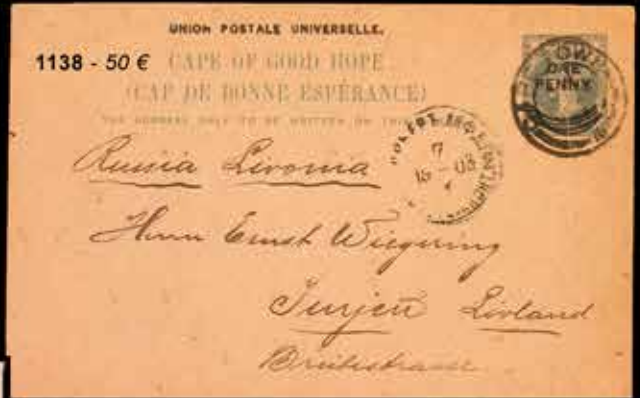 UNION POSTALE UNIVERSELLE.
1138 - 50 €
CAPE OF GOOD HOPE.
(CAP DE BONNE ESPÉRANCE)
THE ADDRESS ONLY TO BE WRITTEN ON THIS
ONE
PENNY
Russia Livonia
7
Herrn Ernst Wiegering
Jurjew Livland